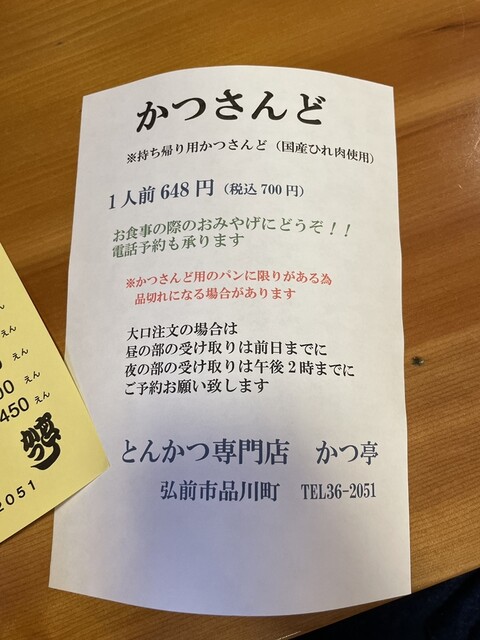 かつさんど
※持ち帰り用かつさんど（国産ひれ肉使用）
1人前648円（税込700円）
お食事の際のおみやげにどうぞ！！
電話予約も承ります
※かつさんど用のパンに限りがある為
品切れになる場合があります
大口注文の場合は
昼の部の受け取りは前日までに
夜の部の受け取りは午後2時までに
ご予約お願い致します
とんかつ専門店 かつ亭
弘前市品川町 TEL36-2051
えん
えん
えん
00 えん
450 えん
かつ亭
2051